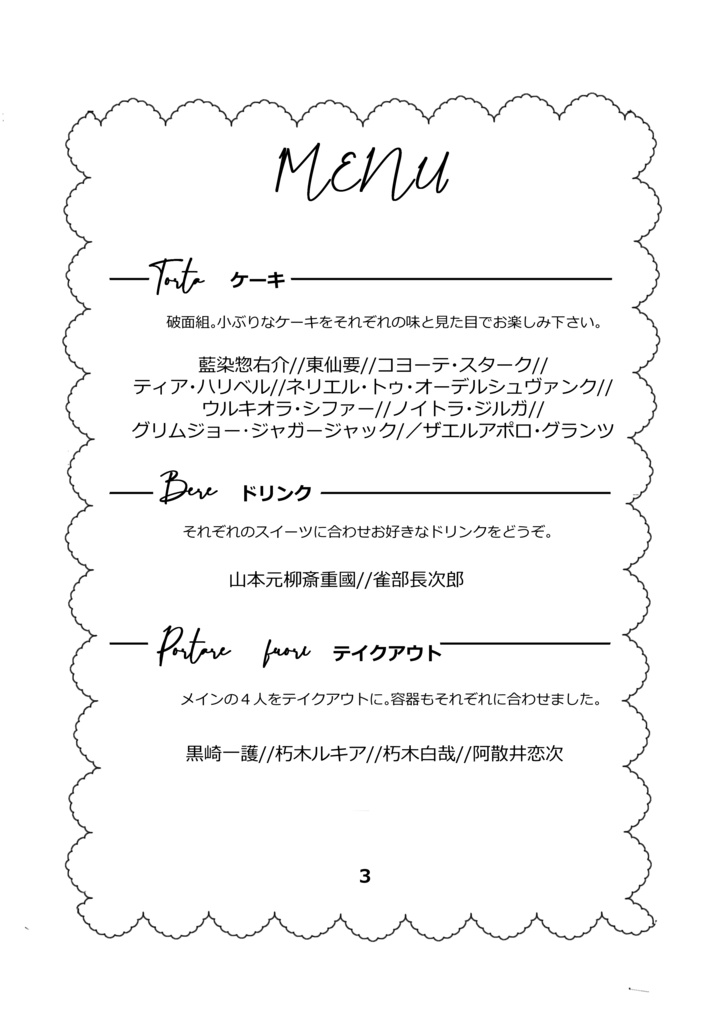 MENU
Torta ケーキ
破面組。小ぶりなケーキをそれぞれの味と見た目でお楽しみ下さい。
藍染惣右介//東仙要//コヨーテ・スターク//
ティア・ハリベル//ネリエル・トゥ・オーデルシュヴァンク//
ウルキオラ・シファー//ノイトラ・ジルガ//
グリムジョー・ジャガージャック/／ザエルアポロ・グランツ
Bere ドリンク
それぞれのスイーツに合わせお好きなドリンクをどうぞ。
山本元柳斎重國//雀部長次郎
Portare fuori テイクアウト
メインの４人をテイクアウトに。容器もそれぞれに合わせました。
黒崎一護//朽木ルキア//朽木白哉//阿散井恋次
3